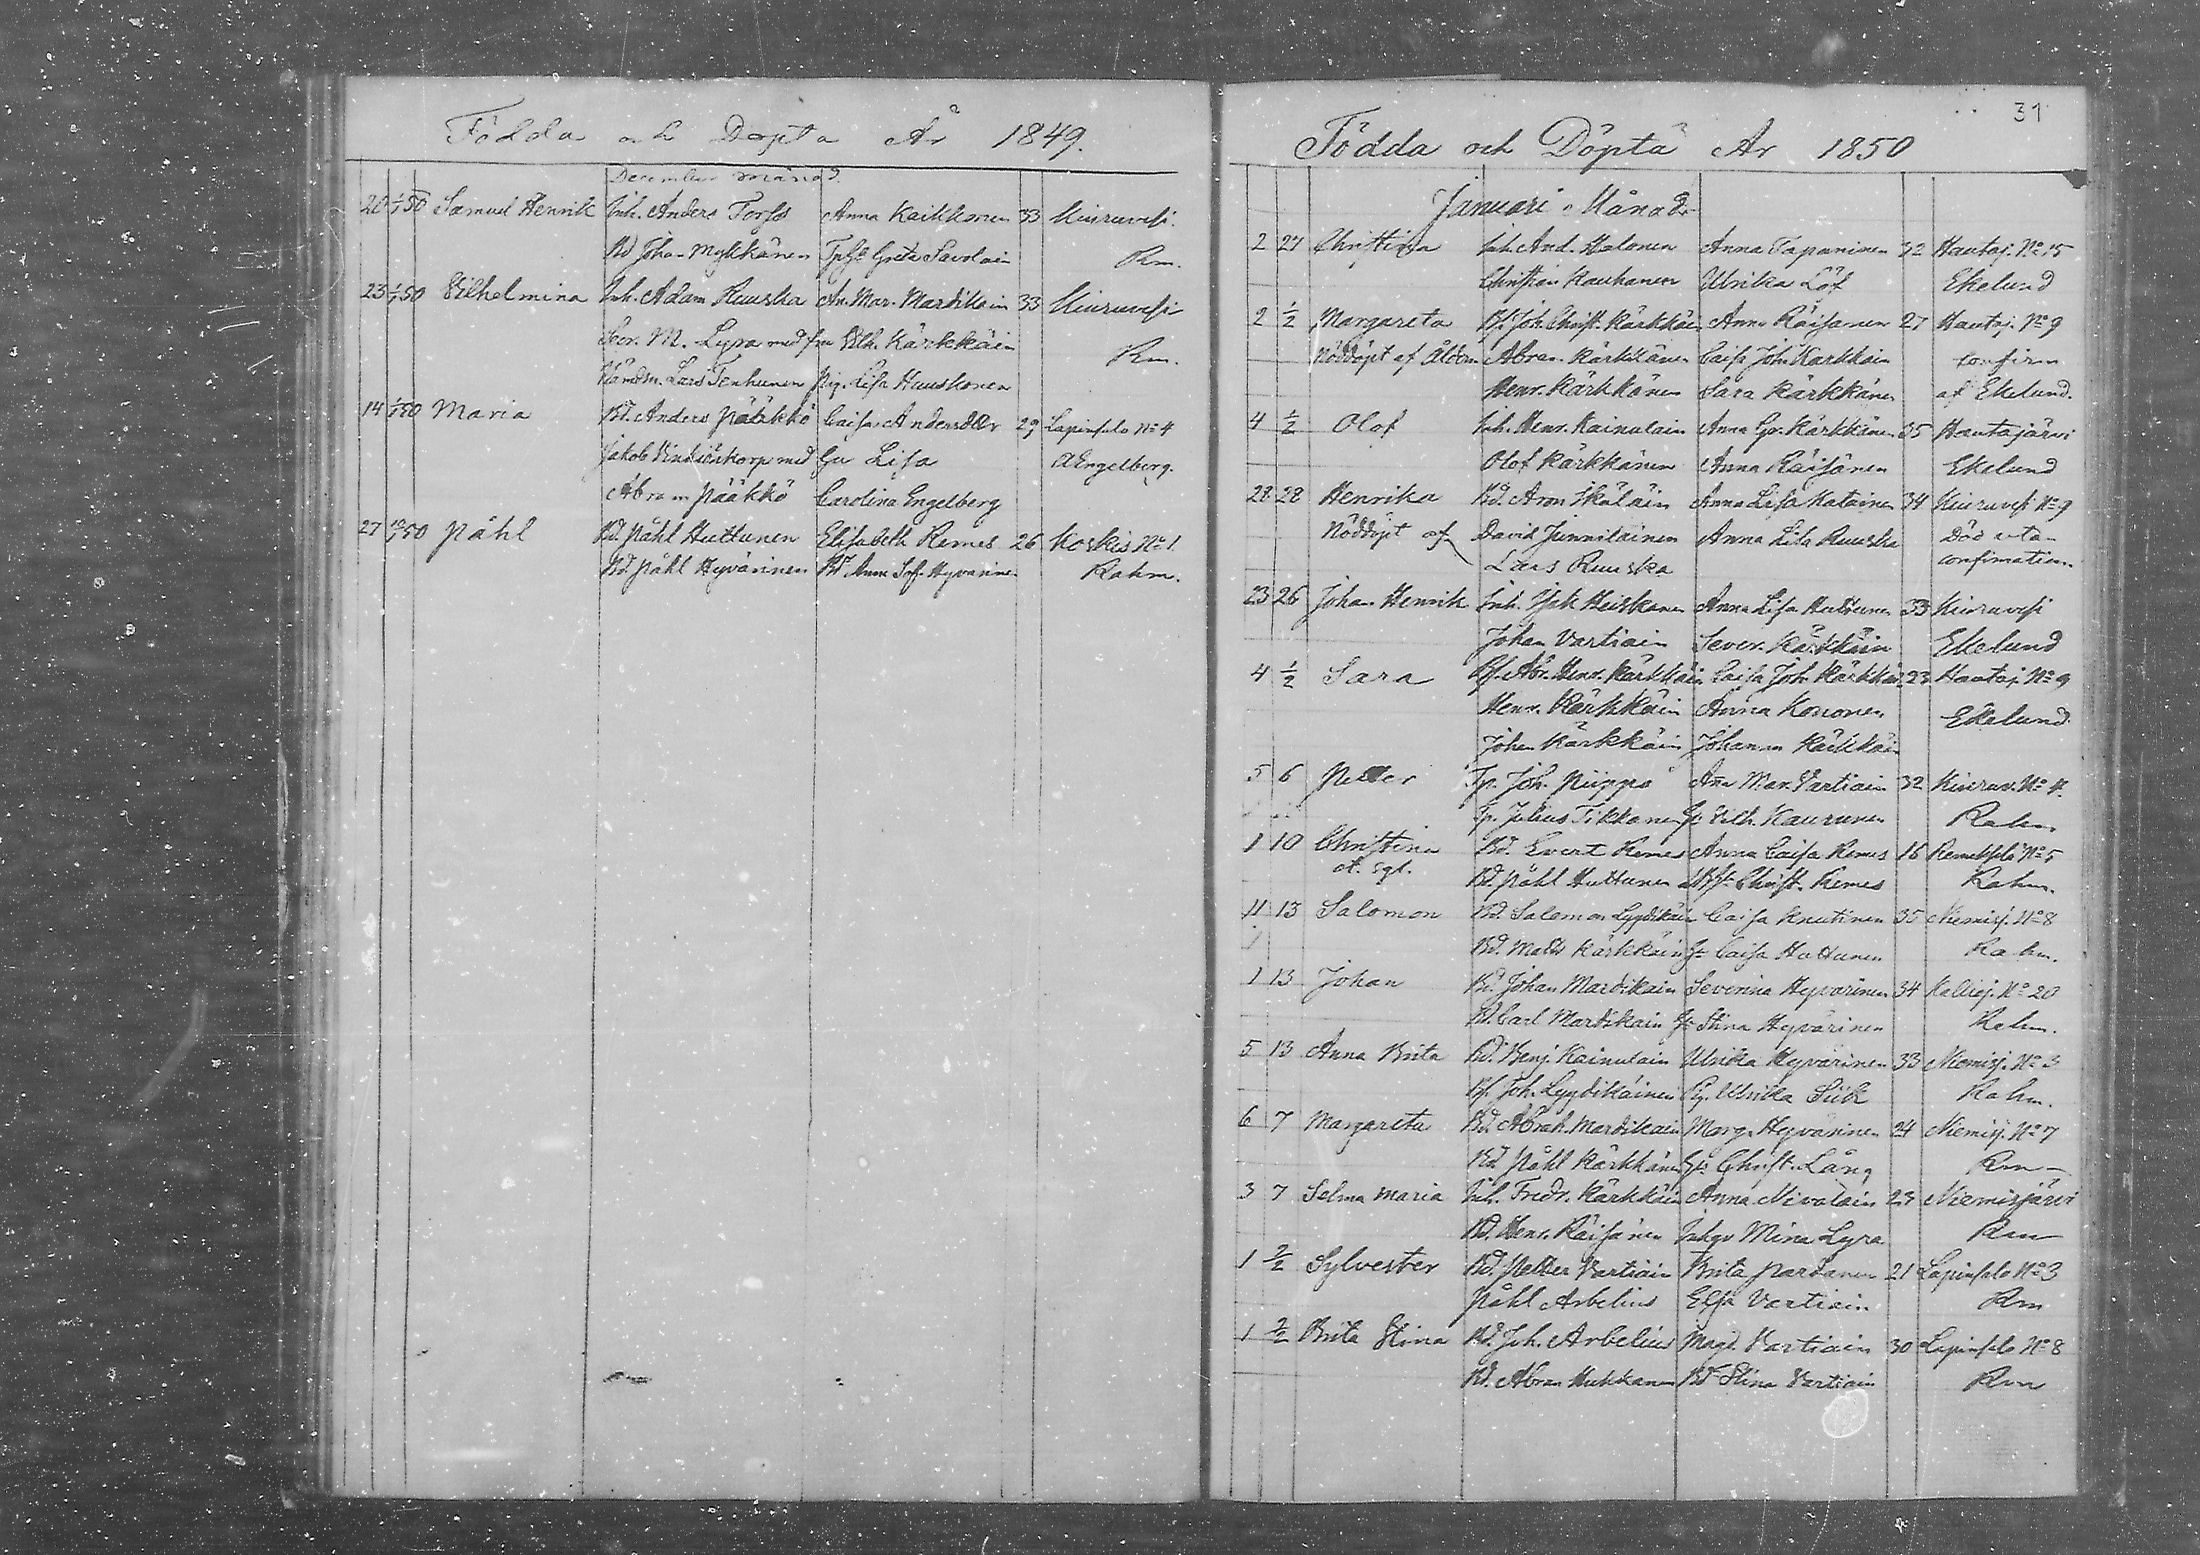 Födda och Döpta År 1849.
December månad.
20 1/1 50 Samuel Henrik Inh. Anders Forss Anna Kaikkonen 33 Kiuruvesi.
Bd Johan Mykkänen Greta Savolain Rm.
23 1/1 50 Vilhelmina Inh. Adam Ruuska An. Mar. Mardikain 33 Kiuruvesi
M. Lyra med fru Vilh. Kärkkäin Rm.
Lars Tenhunen pig. Lisa Huuskonen
14 1/1 50 Maria Bd. Anders Pääkkö Caisa Andersdotter 29 Lapinsalo No 4
Jakob med hu Lisa A Engelberg.
Abram Pääkkö Carolina Engelberg
27 50 Påhl Bd. Påhl Huttunen Elisabeth Remes 26 Koskis No 1.
Bd. Påhl Hyvärinen Anna Sof. Hyvärinen Rahm.
31
Födda och Döpta År 1850
Januari Månad
2 27 Christina Inh. And. Halonen Anna Tapaninen 32 Hautaj. No 15
Christian Kauhanen Ulrika Löf Ekelund
2 1/2 Margareta Bs. Joh. Christ. Kärkkäin Anna Räisänen 27 Hautaj. No 9
Nöddöpt af Abra. Kärkkänen Caisa Joh. Kärkkäin confirm
Henr. Kärkkänen Sara Kärkkänen af Ekelund.
4 1/2 Olof Inh. Henr. Kainulain Anna Gr. Kärkkänen 35 Hautajärvi
Olof Kärkkänen Anna Räisänen Ekelund
28 28 Henrika Bd. Aron Anna Lisa Katainen 34 Kiuruvesi No 9
Nöddöpt af David Junnilainen Anna Lisa Ruuska Död utan
Lars Ruuska confirmation
23 26 Johan Henrik Inh. Isak Heiskanen Anna Lisa Huttunen 33 Kiuruvesi
Johan Vartiain Sever. Kärkkäin Ekelund
4 1/2 Sara Bs. Abr. Henr. Kärkkäin Caisa Joh. Kärkkäi 23 Hautaj. No 9
Henr. Kärkkäin Anna Kononen Ekelund
Johan Kärkkäin Johanna Kärkkäin
5 6 Petter Tp. Joh. Piippo Ana Mar. Vartiain 32 Kiuruv. No 4.
Tp. Julius Tikkanen Vilh. Kaurunen Rahm
1 10 Christina Bd. Evert Remes Anna Caisa Remes 16 No 5
Bd. Påhl Huttunen Christ. Remes Rahm.
11 13 Salomon Bd. Salomon Lyydikäin Caisa Knutinen 35 Niemisj. No 8
Bd. Matts Kärkkäin Caisa Huttunen Rahm.
1 13 Johan Bd. Johan Mardikain Severina Hyvärinen 34 Kallioj. No 20
Bd. Carl Mardikain Stina Hyvärinen Rahm.
5 13 Anna Brita Bd. Benj. Kainulain Ulrika Hyvärinen 33 Niemisj. No 3
Bs. Joh. Lyydikäinen Pig. Ulrika Rahm.
6 7 Margareta Bd. Abrah. Mardikain Marg. Hyvärinen 24 Niemisj. No 7
Bd. Påhl Kärkkänen Christ. Lång Rm
3 7 Selma Maria Inh. Fredr. Kärkkäin Anna Nivalain 23 Niemisjärvi
Bd. Henr. Räisänen Mina Lyra Rm
1 2/2 Sylvester Bd. Petter Vartiain Brita Pardanen 21 Lapinsalo No 3
Påhl Arbelius Elsa Vartiain Rm
1 2/2 Brita Stina Bd. Joh. Arbelius Magd. Vartiain 30 Lapinsalo No 8
Bd. Abram Hukkanen Stina Vartiain Rm